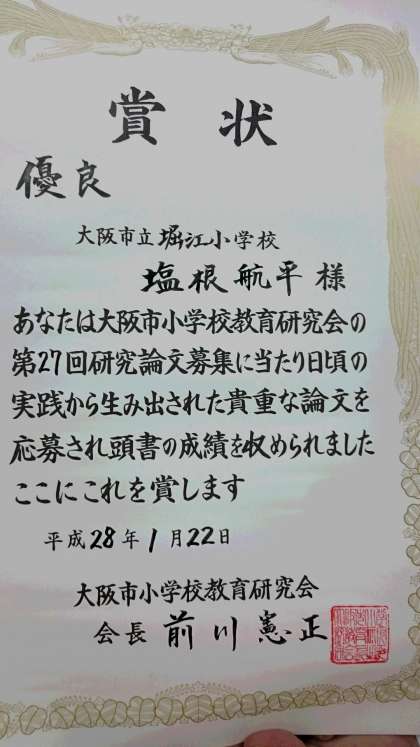 賞状
優良
大阪市立堀江小学校
塩根航平様
あなたは大阪市小学校教育研究会の
第27回研究論文募集に当たり日頃の
実践から生み出された貴重な論文を
応募され頭書の成績を収められました
ここにこれを賞します
平成28年1月22日
大阪市小学校教育研究会
会長 前川憲正